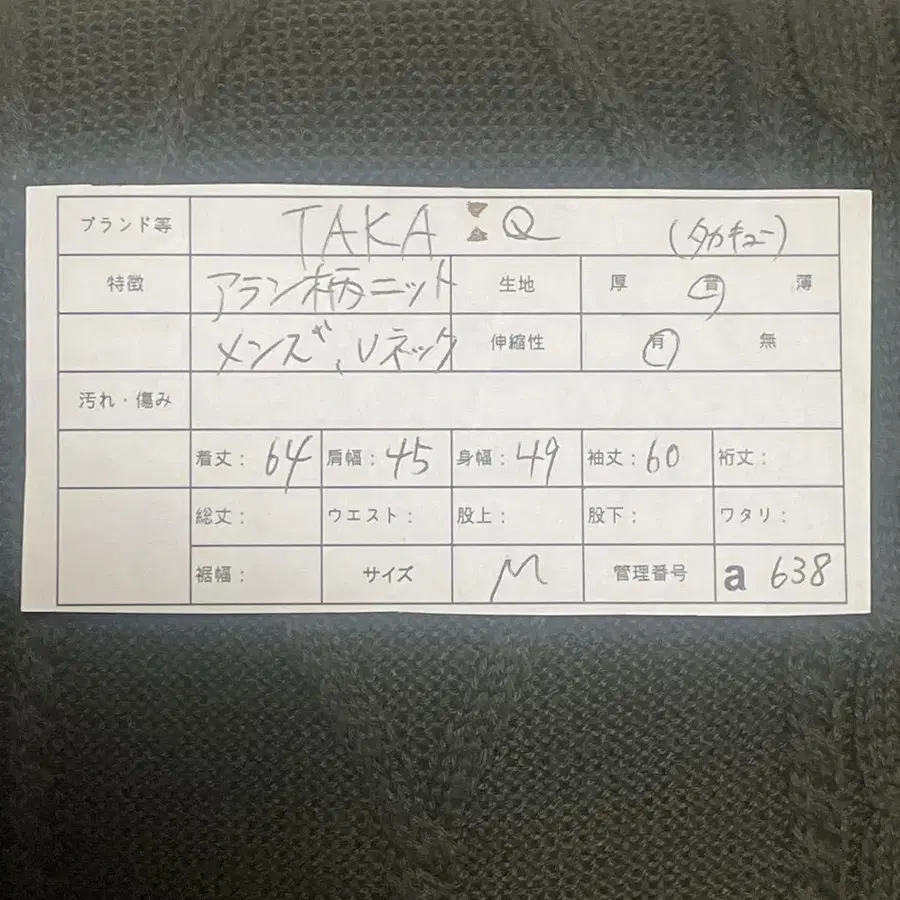 ブランド等 TAKA:Q (タカキュー)
特徴 アラン柄ニット 生地 厚 普 薄
メンズ、Vネック 伸縮性 有 無
汚れ・傷み
着丈: 64 肩幅: 45 身幅: 49 袖丈: 60 裄丈:
総丈: ウエスト: 股上: 股下: ワタリ:
裾幅: サイズ M 管理番号 a 638